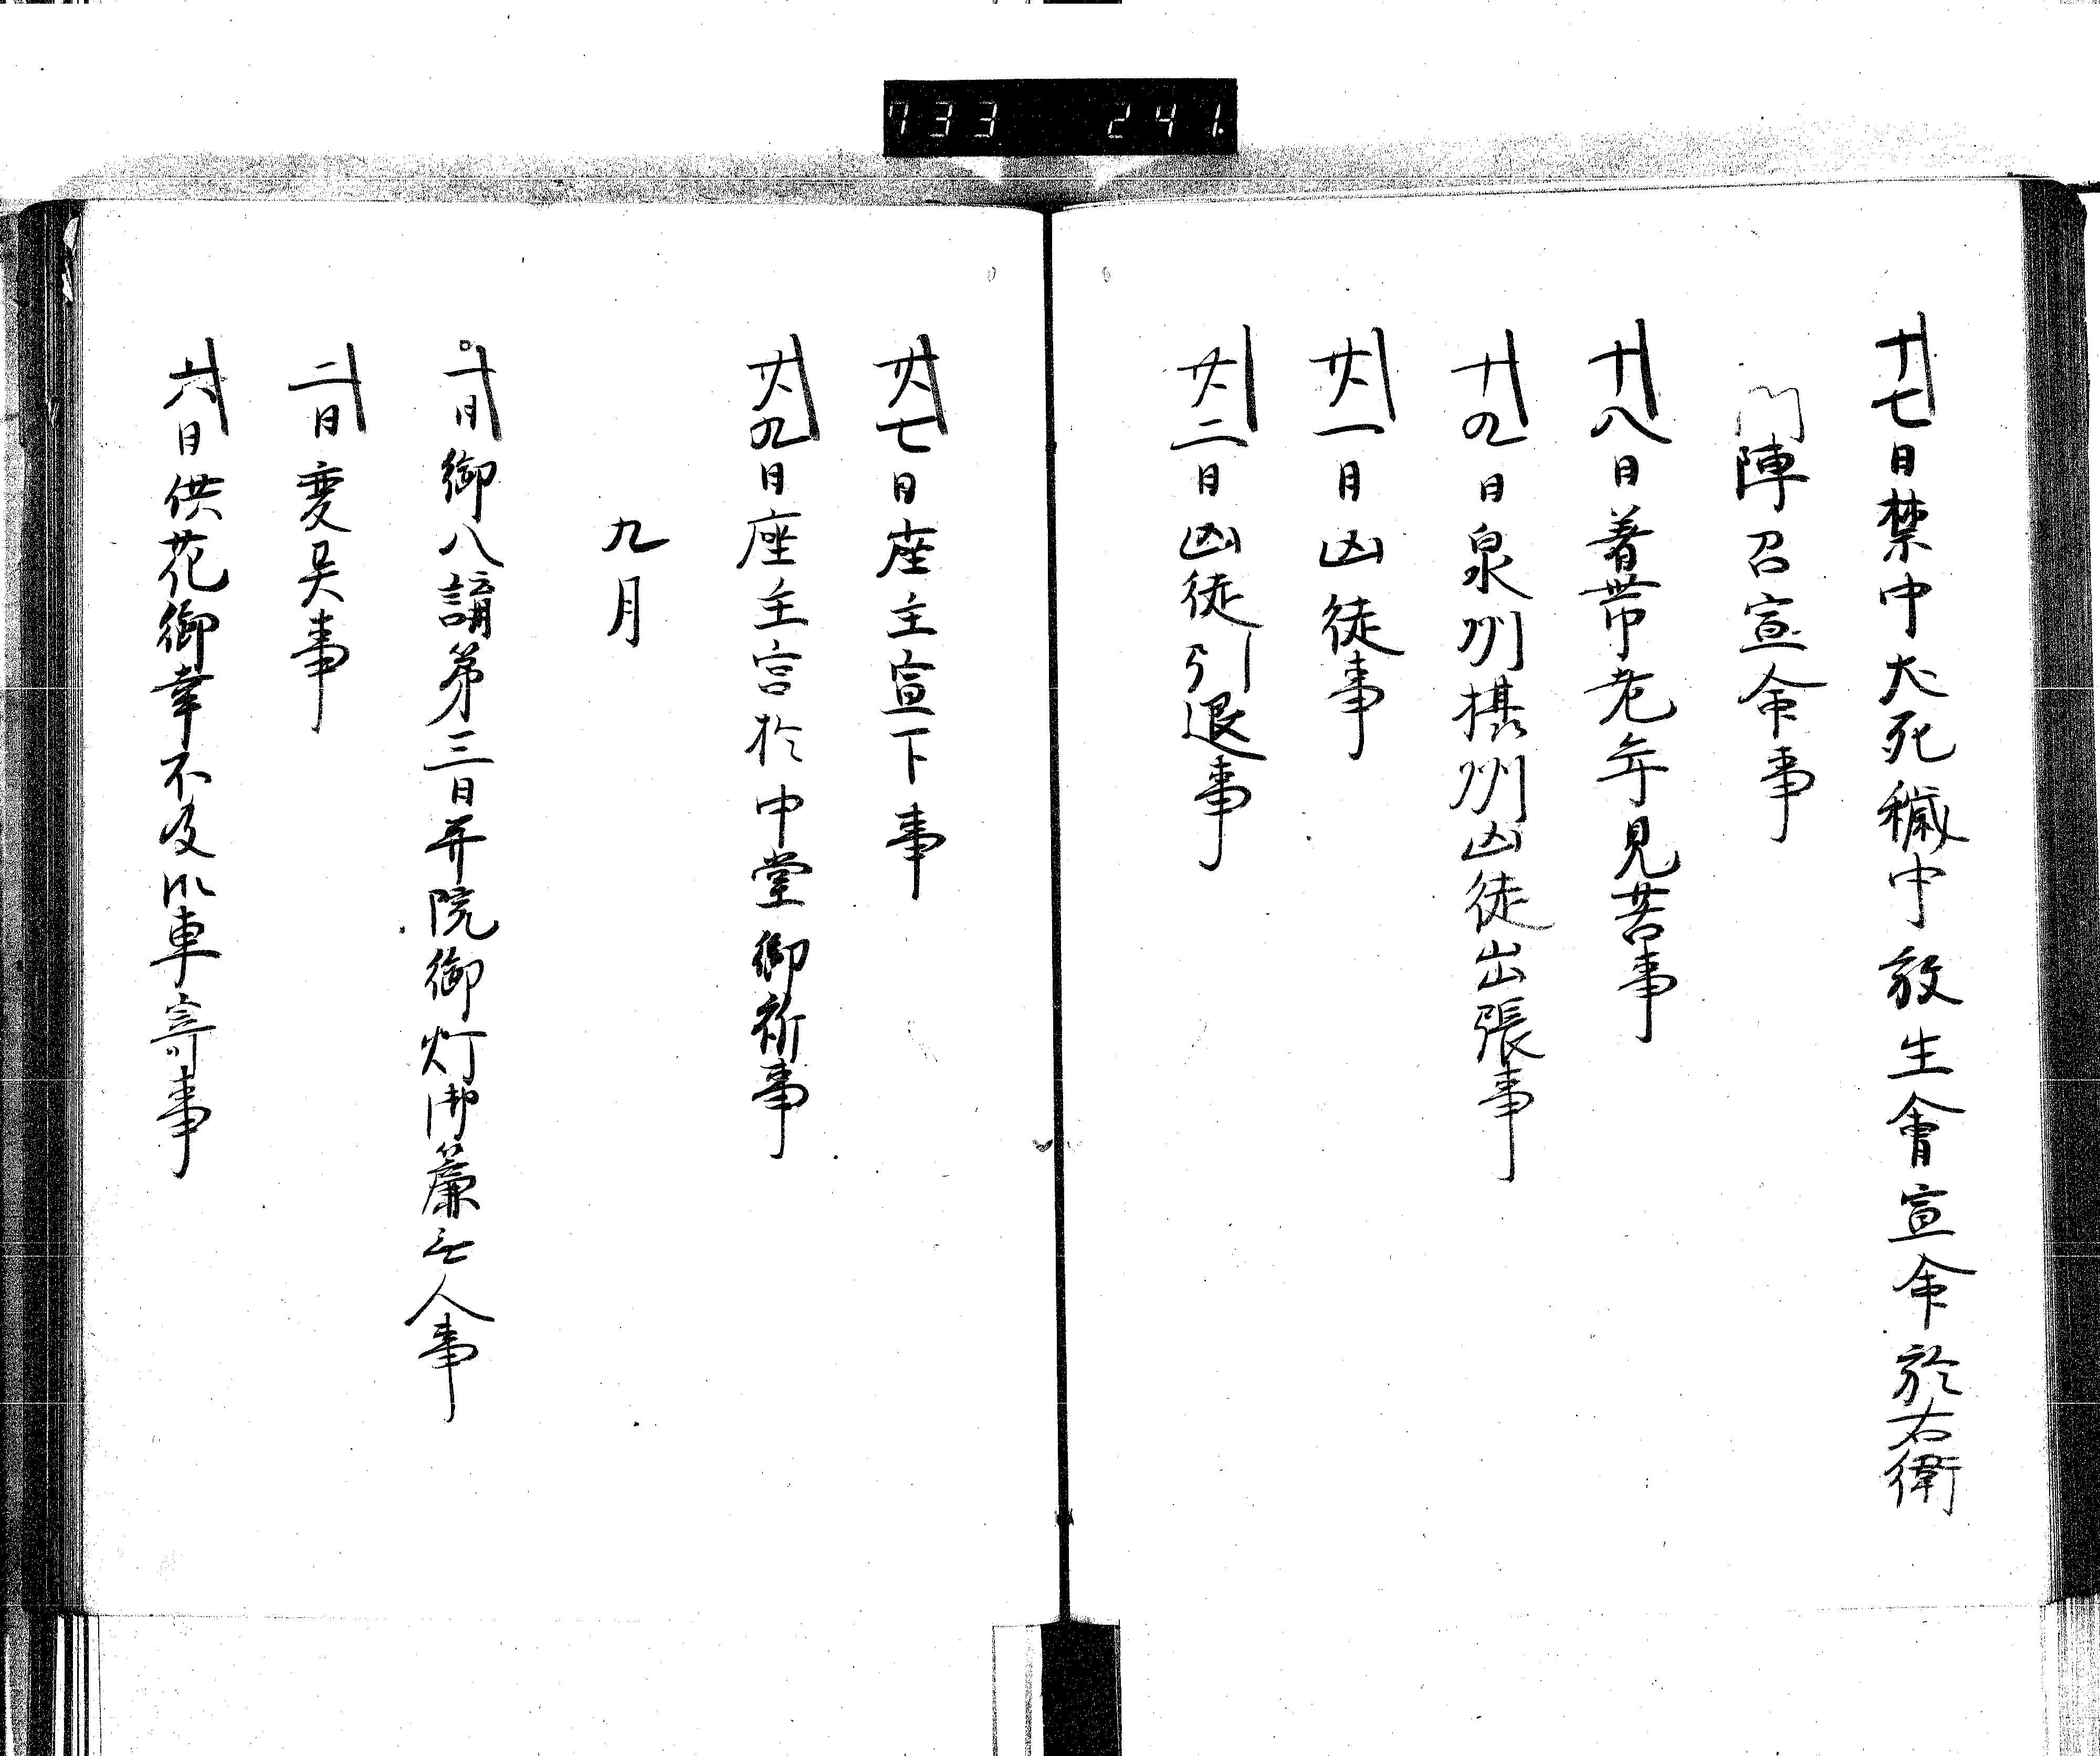 733 241
十七日禁中犬死穢中放生會宣命於右衛
門陣召宣命事
十八日著帯老年見苦事
十九日泉州摂州凶徒出張事
廿一日凶徒事
廿二日凶徒引退事
廿七日座主宣下事
廿九日座主宮於中堂御祈事
九月
一日御八講第三日并院御灯御簾無人事
二日変異事
六日供花御幸不及御車寄事